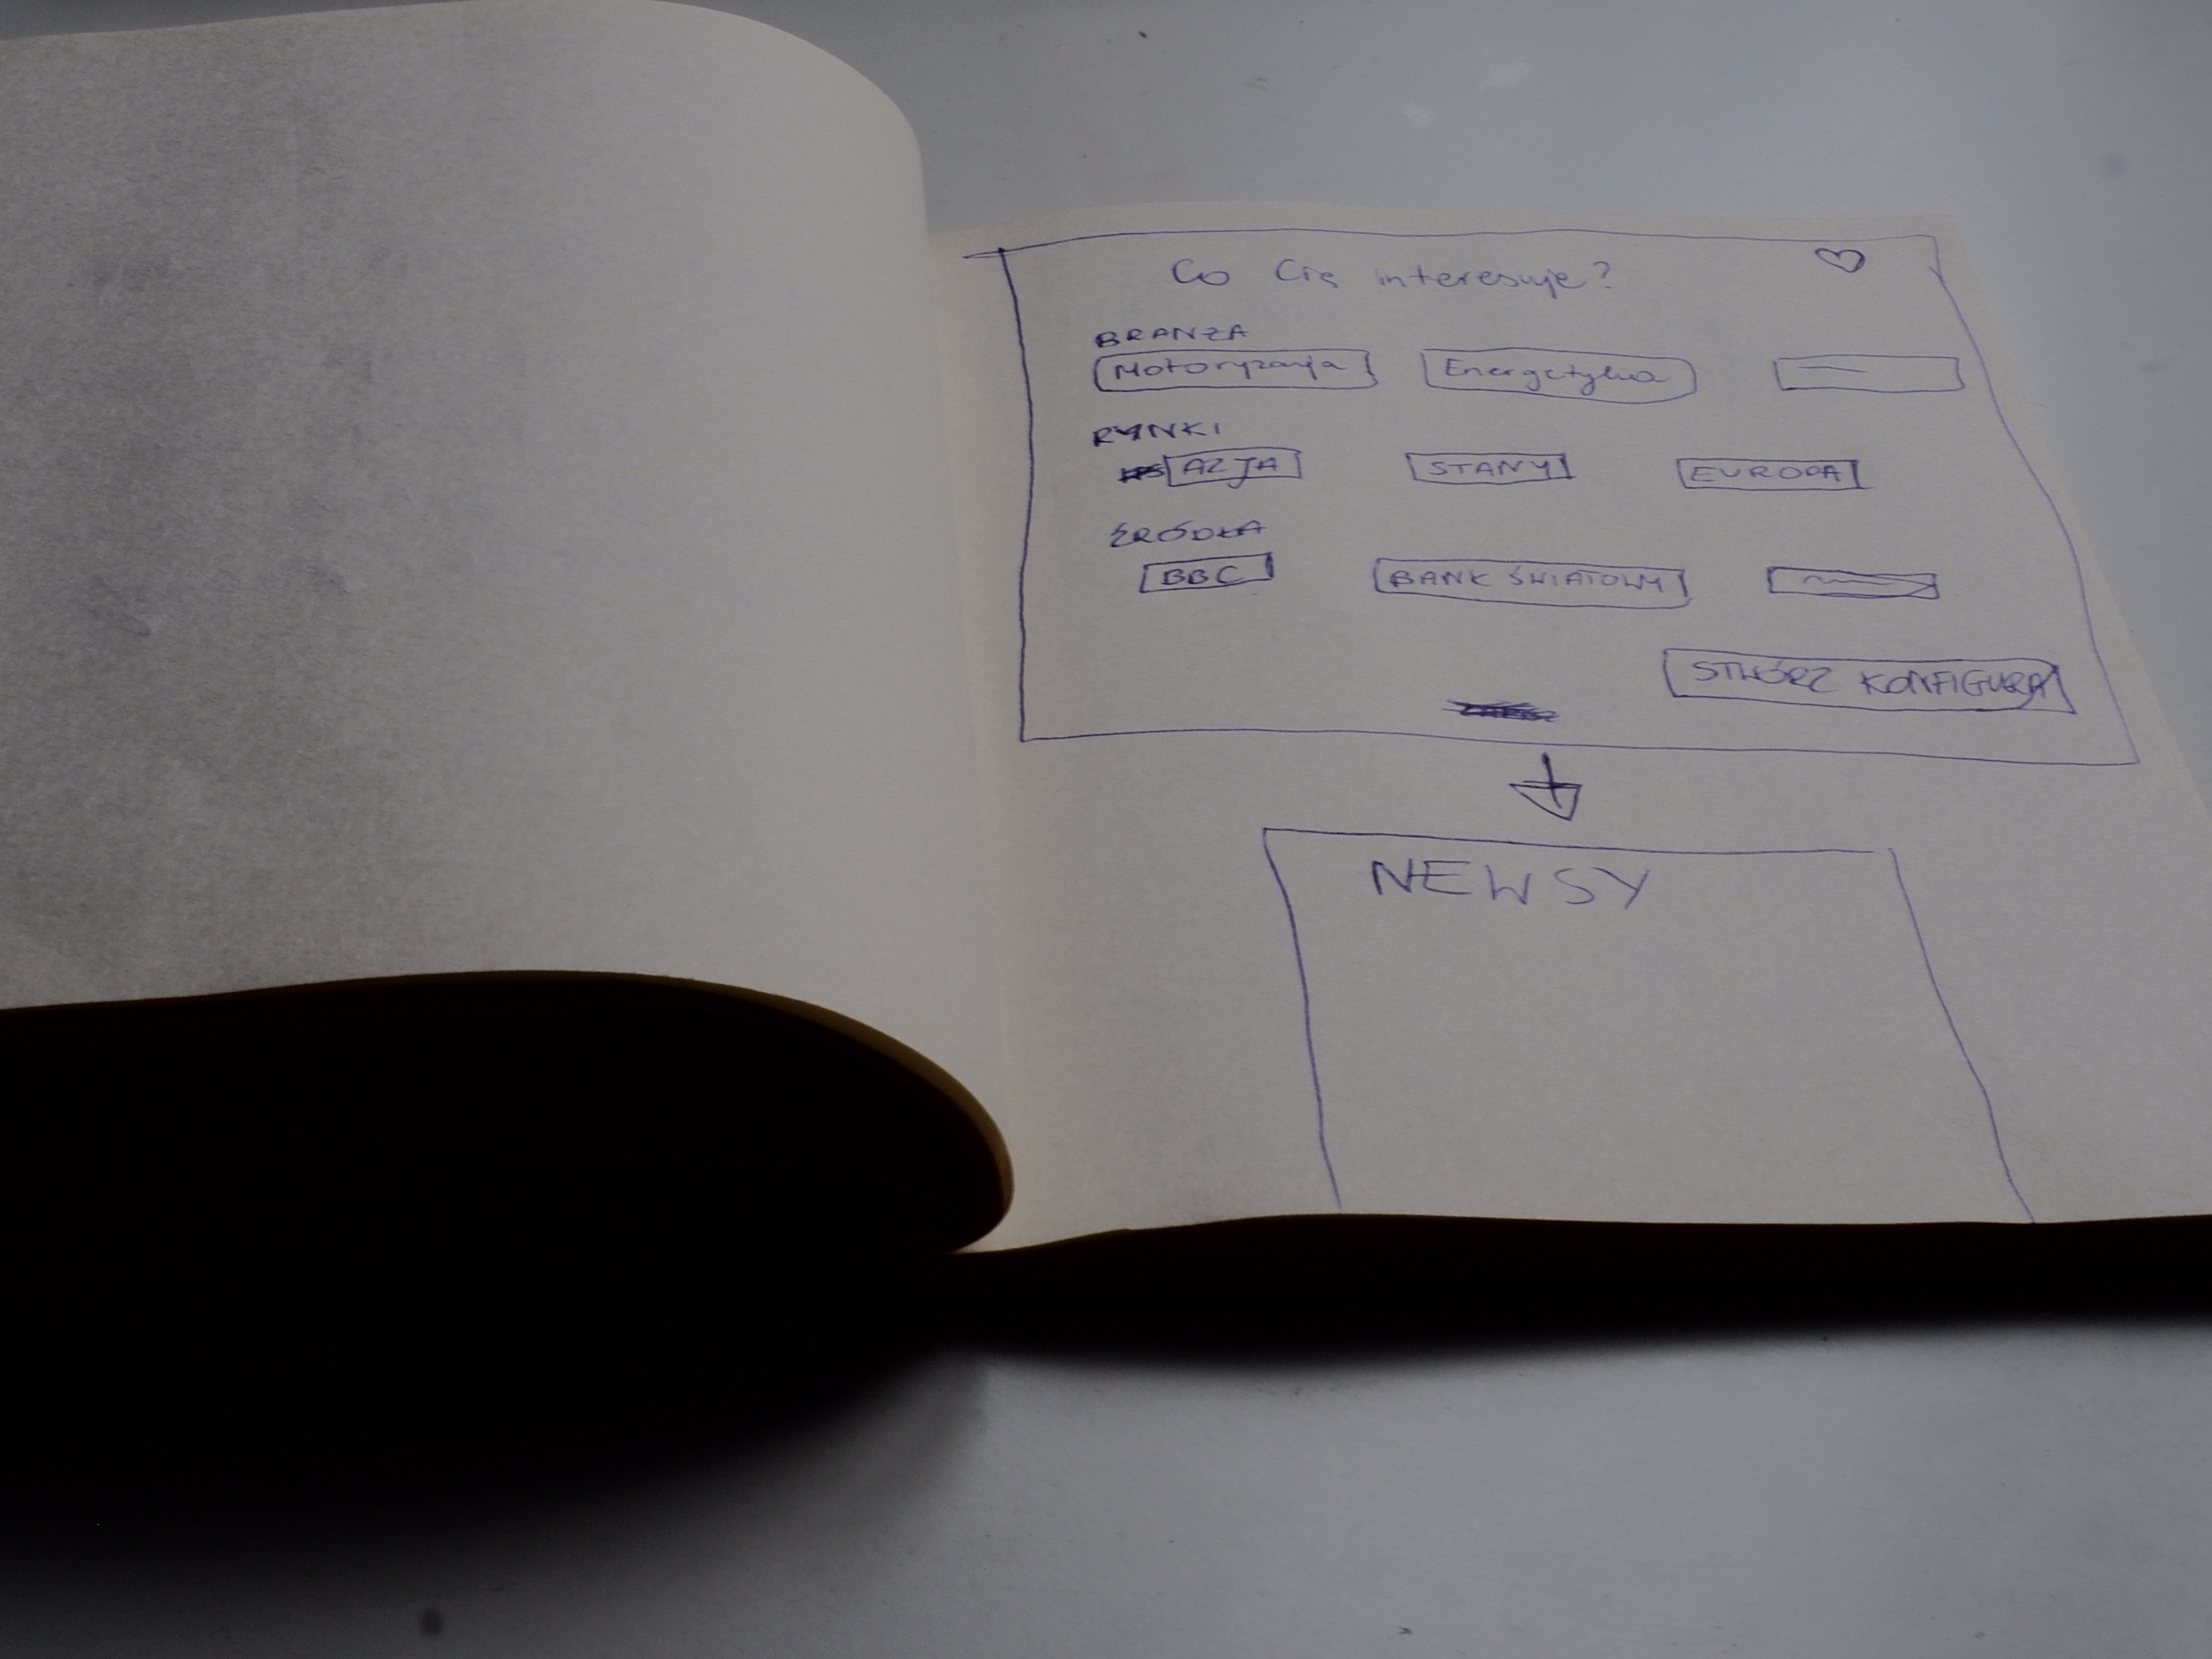 Co Cię interesuje?
BRANŻA
Motoryzacja Energetyka
RYNKI
AZJA STANY EUROPA
ŹRÓDŁA
BBC BANK ŚWIATOWY
STWÓRZ KONFIGURA
NEWSY